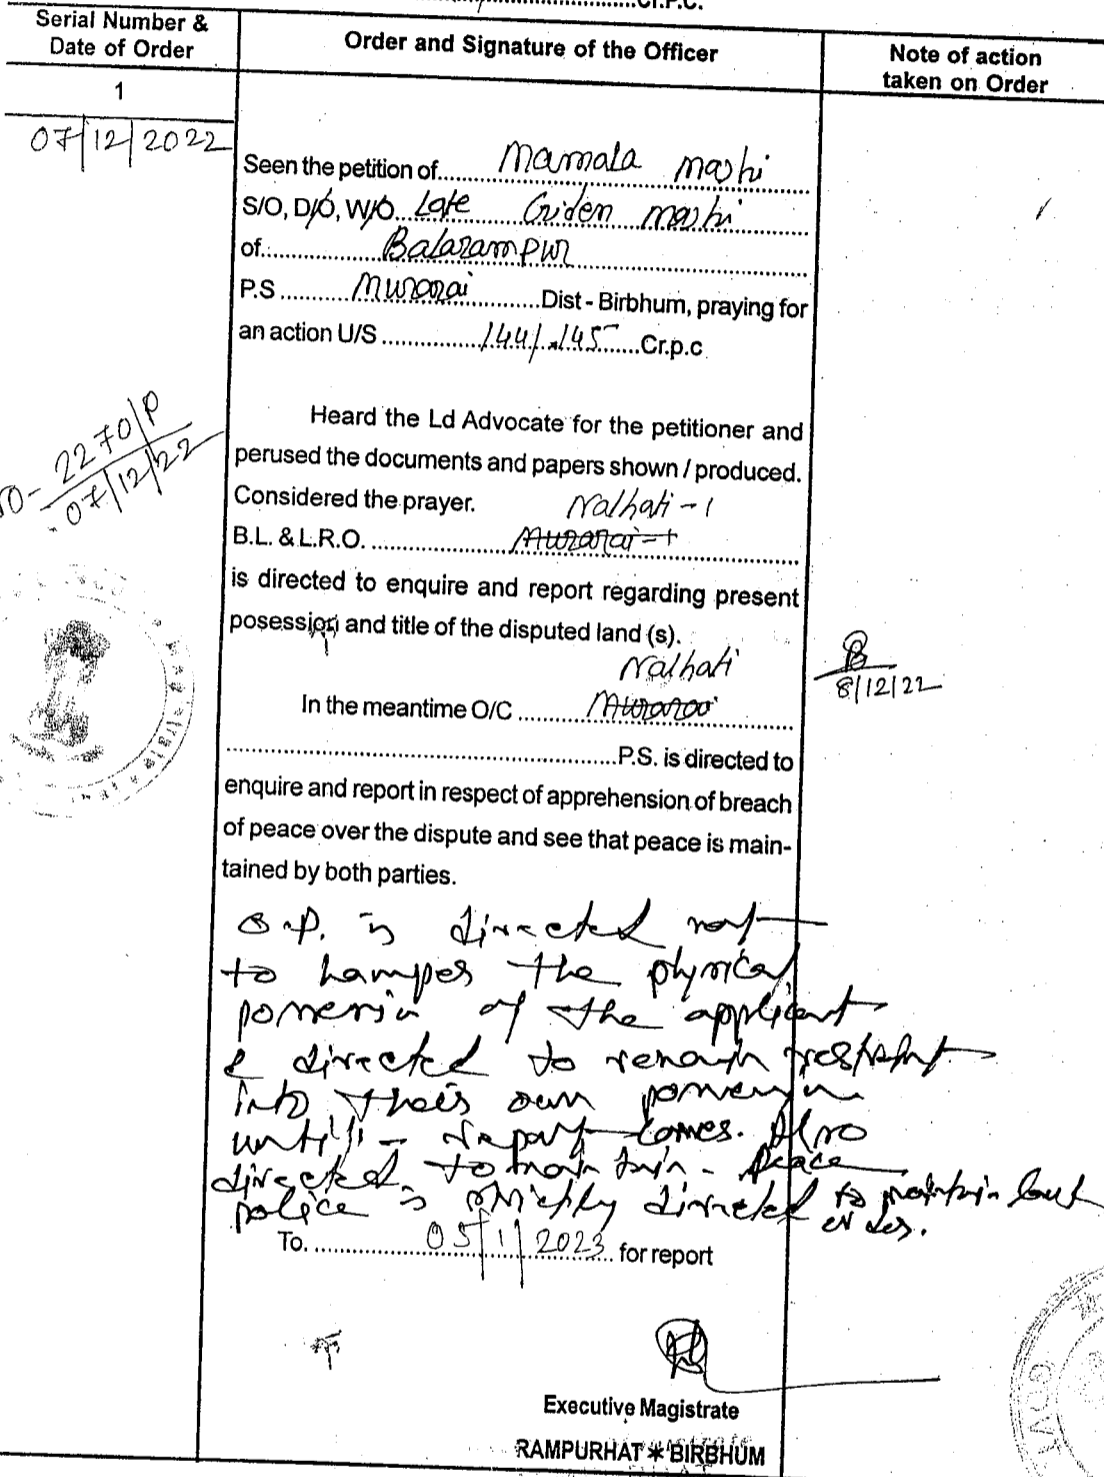 Cr.P.C.
Serial Number &
Date of Order
Order and Signature of the Officer
Note of action
taken on Order
1
07/12/2022
Seen the petition of Mamala mashi
S/O, D/O, W/O Late Griden mashi
of Balarampur
P.S Murarai Dist - Birbhum, praying for
an action U/S 144/145 Cr.p.c
Heard the Ld Advocate for the petitioner and
perused the documents and papers shown / produced.
Considered the prayer. Nalhati - 1
B.L. & L.R.O. Murarai - 1
is directed to enquire and report regarding present
posession and title of the disputed land (s).
Nalhati
In the meantime O/C Murarai
P.S. is directed to
enquire and report in respect of apprehension of breach
of peace over the dispute and see that peace is main-
tained by both parties.
NO- 2270/P
07/12/22
8/12/22
O.P. is directed not
to hamper the physical
possession of the applicant
& directed to remain
into their own possession
until report comes. Also
directed to maintain peace
police is strictly directed to maintain law &
order.
To. 05/1/2023 for report
Executive Magistrate
RAMPURHAT * BIRBHUM
GOVT